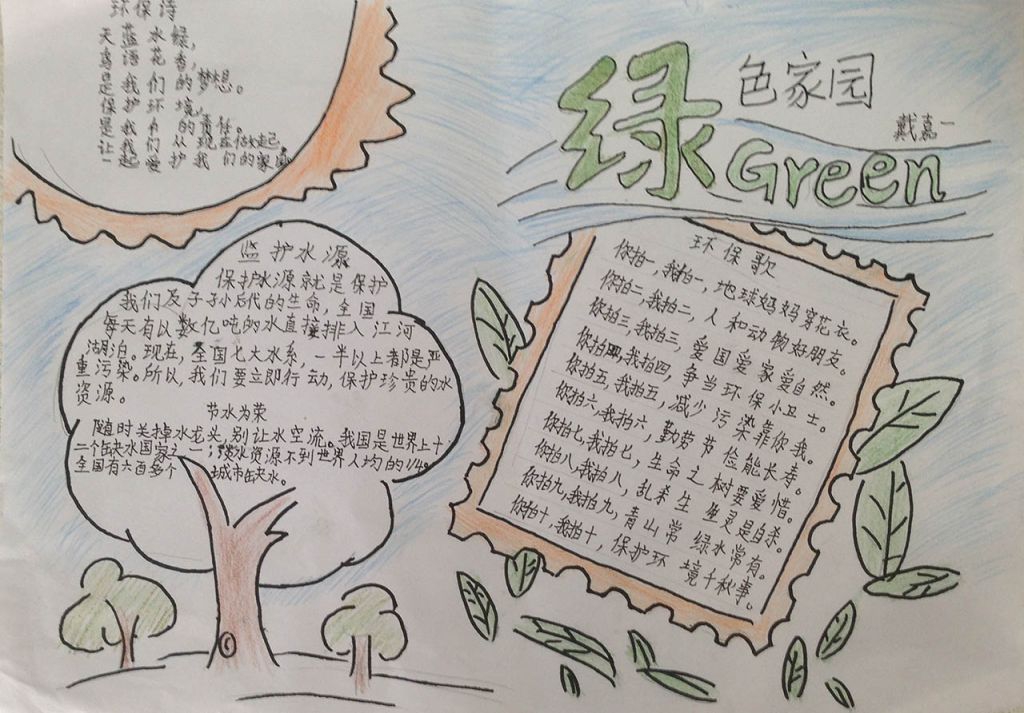 环保诗
天蓝水绿,
鸟语花香,
是我们的梦想。
保护环境,
是我们的责任。
让我们从现在做起,
一起爱护我们的家园。
绿
色家园
戴嘉一
Green
监护水源
保护水源就是保护
我们及子子孙后代的生命,全国
每天有以数亿吨的水直接排入江河
湖泊。现在,全国七大水系,一半以上都是严
重污染。所以,我们要立即行动,保护珍贵的水
资源。
节水为荣
随时关掉水龙头,别让水空流。我国是世界上十
二个缺水国家之一;淡水资源不到世界人均的1/4。
全国有六百多个城市缺水。
环保歌
你拍一,我拍一,地球妈妈穿花衣。
你拍二,我拍二,人和动物好朋友。
你拍三,我拍三,爱国爱家爱自然。
你拍四,我拍四,争当环保小卫士。
你拍五,我拍五,减少污染靠你我。
你拍六,我拍六,勤劳节俭能长寿。
你拍七,我拍七,生命之树要爱惜。
你拍八,我拍八,乱弄生灵是自杀。
你拍九,我拍九,青山常绿水常有。
你拍十,我拍十,保护环境千秋事。